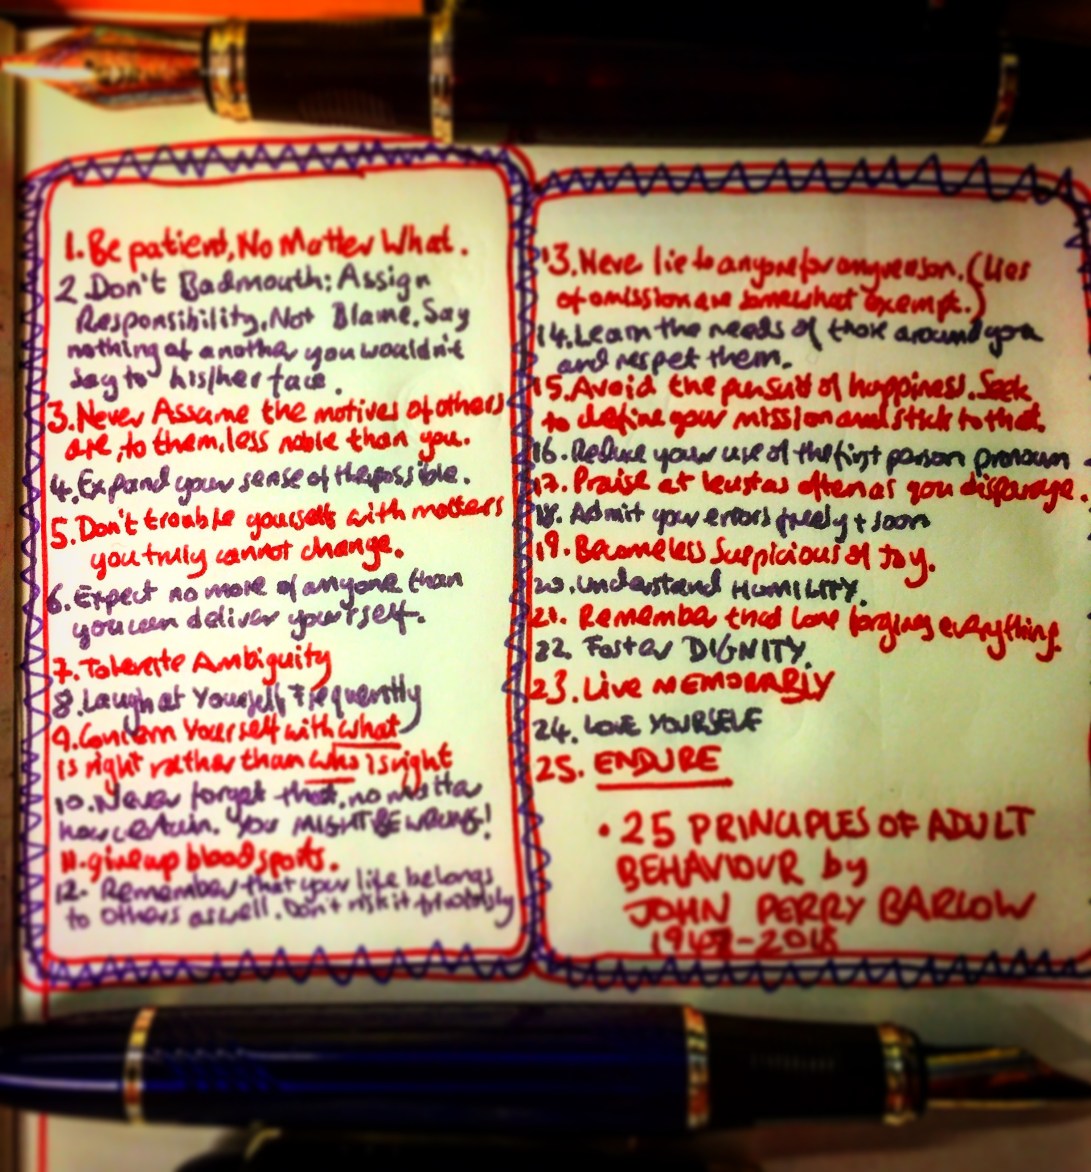 1. Be patient, No Matter What.
2. Don't Badmouth: Assign
Responsibility, Not Blame. Say
nothing of another you wouldn't
say to his/her face.
3. Never Assume the motives of others
are, to them, less noble than you.
4. Expand your sense of the possible.
5. Don't trouble yourself with matters
you truly cannot change.
6. Expect no more of anyone than
you can deliver yourself.
7. Tolerate Ambiguity
8. Laugh at Yourself Frequently
9. Concern Yourself with what
is right rather than who is right
10. Never forget that, no matter
how certain. You MIGHT BE WRONG!
11. give up blood sports.
12. Remember that your life belongs
to others as well. Don't risk it frivolously
13. Never lie to anyone for any reason. (Lies
of omission are somewhat exempt.)
14. Learn the needs of those around you
and respet them.
15. Avoid the pursuit of happiness. Seek
to define your mission and stick to that.
16. Reduce your use of the first person pronoun
17. Praise at least as often as you disparage.
18. Admit your errors freely + soon
19. Become less Suspicious of Joy.
20. Understand HUMILITY.
21. Remember that love forgives everything.
22. Foster DIGNITY.
23. Live MEMORABLY
24. LOVE YOURSELF
25. ENDURE
• 25 PRINCIPLES OF ADULT
BEHAVIOUR by
JOHN PERRY BARLOW
1947-2018